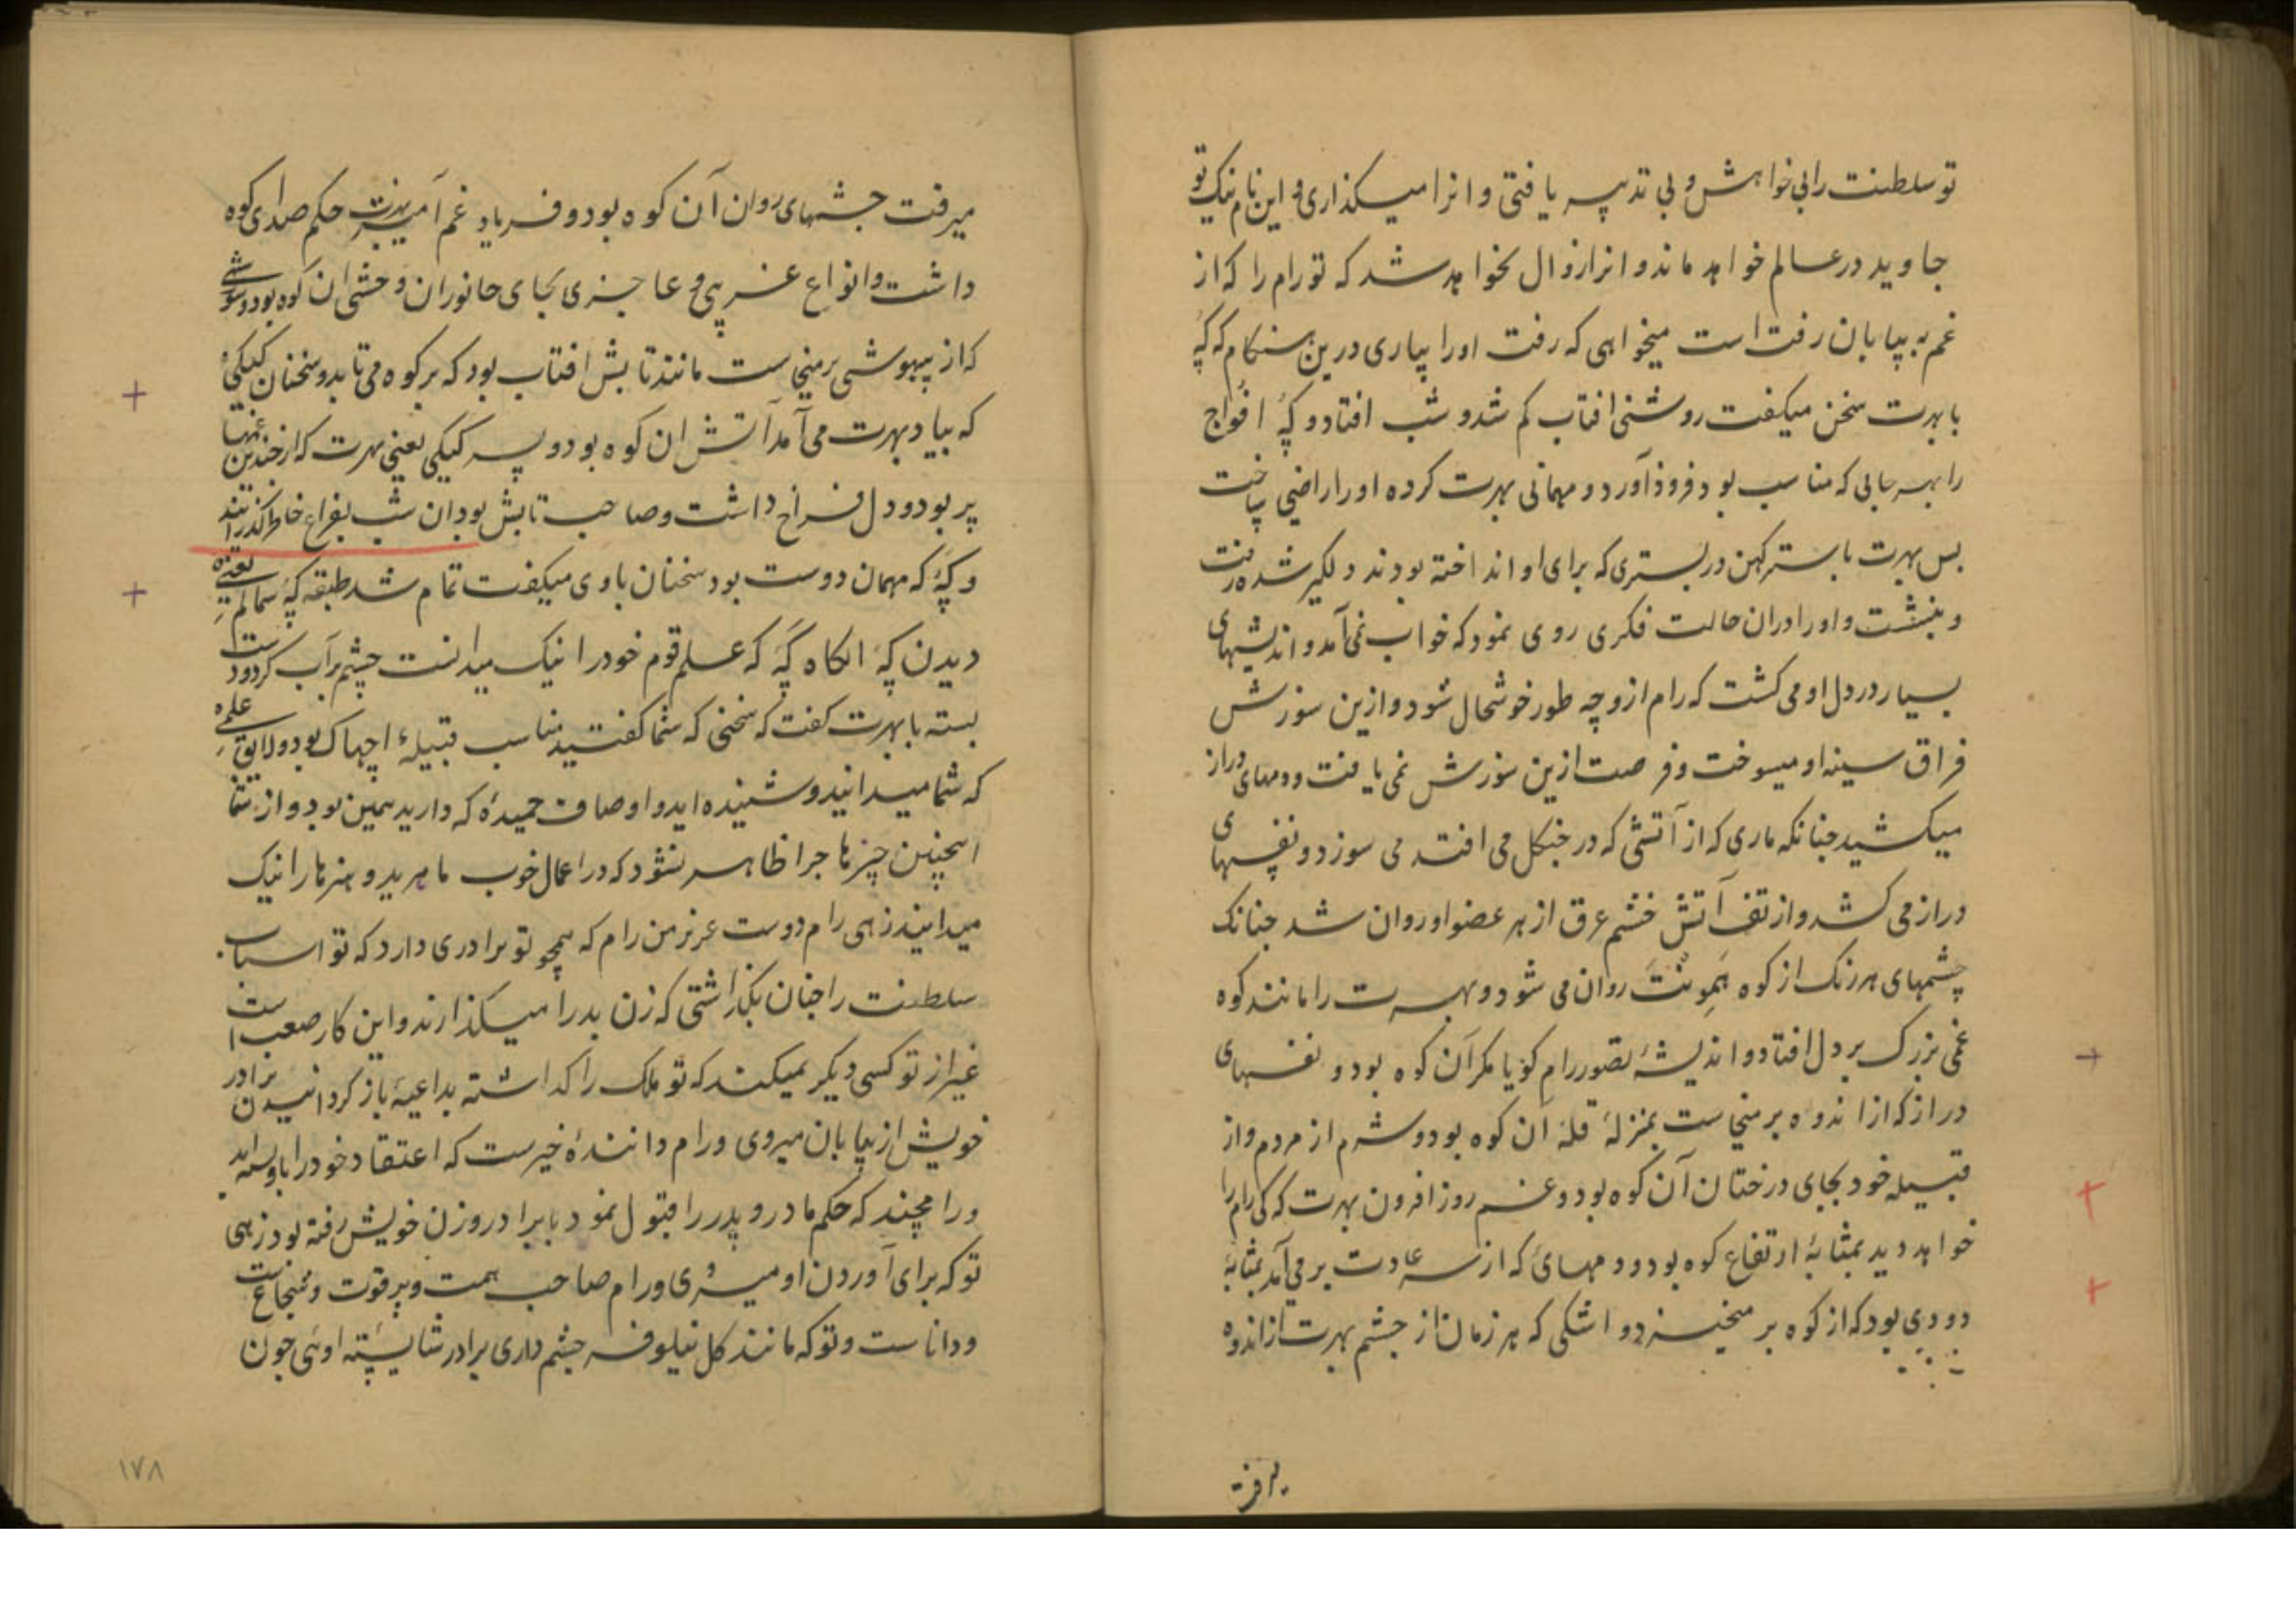 تو سلطنت رابی خواهش و بی تدبیر یافتی و انرا میکذاری و این نام نیک تو
جاوید در عالم خواهد ماند و انرا زوال نخواهد شد که تو رام را که از
غم به بیابان رفت است میخواهی که رفت اورا بیاری درین هنکام که کپه
با بهرت سخن میکفت روشنی افتاب کم شد و شب افتاد و کپه افواج
را بهر جایی که مناسب بود فروذ آورد و مهمانی بهرت کرده اورا راضی ساخت
بس بهرت با بستر کهن در بستری که برای او انداخته بودند دلکیر شده رفت
و بنشست و اورا دران حالت فکری روی نمود که خواب نمی آمد و اندیشهای
بسیار در دل او می کشت که رام ازو چه طور خوشحال شود و ازین سوزش
فراق سینه او میسوخت و فرصت ازین سوزش نمی یافت و دمهای دراز
میکشید جنانکه ماری که از آتشی که در جنکل می افتد می سوزد و نفسهای
دراز می کشد و از تف آتش خشم عرق از هر عضو او روان شد جنانک
چشمهای هر رنک از کوه هَمِونْتَ روان می شود و بهرت را مانند کوه
غمی بزرک بر دل افتاد و اندیشۀ تصور رام کویا مکر آن کوه بود و نفسهای
دراز که از اندوه بر میخاست بمنزلۀ قلۀ ان کوه بود و شرم از مردم و از
قبیله خود بجای درختان آن کوه بود و غم روز افزون بهرت که کی رام را
خواهد دید بمثابۀ ارتفاع کوه بود و دمهای که از سر عادت بر می آمد بمثابۀ
دودی بود که از کوه بر میخیزد و اشکی که هر زمان از جشم بهرت از اندوه
میرفت
میرفت جشمهای روان آن کوه بود و فریاد غم آمیز بهرت حکم صدای کوه
داشت و انواع غریبی و عاجزی بجای جانوران وحشی ان کوه بود و
که از بیهوشی بر میخاست مانند تابش افتاب بود که بر کوه می تابد و سخنان کیکیی
که بیاد بهرت می آمد آتش ان کوه بود و پسر کیکیی یعنی بهرت که از جندین غمها
پر بود و دل فراخ داشت و صاحب تابش بود ان شب بفراغ خاطر کذرانند
و کپه که مهمان دوست بود سخنان باوی میکفت تمام شد طبقه کپه
دیدن کپه انکاه کپه که علم قوم خود را نیک میدانست چشم پر آب کرد و دست
بسته با بهرت کفت که سخنی که شما کفتید مناسب قبیلۀ اجهاک بود و لایق علمی
که شما میدانید و شنیده اید و اوصاف حمیده که دارید همین بود و از شما
اینچنین چیزها جرا ظاهر نشود که در اعمال خوب ماهرید و هنرها را نیک
میدانید زهی رام دوست عزیز من رام که همچو تو برادری دارد که تو اسباب
سلطنت را جنان بکذاشتی که زن بد را میکذارند و این کار صعب است
غیر از تو کسی دیکر نمیکند که تو ملک را کذاشته بداعیۀ باز کردانیدن برادر
خویش از بیابان میروی و رام دانندۀ خیرست که اعتقاد خود را
و رامچند که حکم مادر و پدر را قبول نمود با برادر و زن خویش رفته بود زهی
تو که برای آوردن او میروی و رام صاحب همت و پر قوت و شجاعست
و داناست و تو که مانند کل نیلوفر جشم داری برادر شایسته اوئی جون
۱۷۸